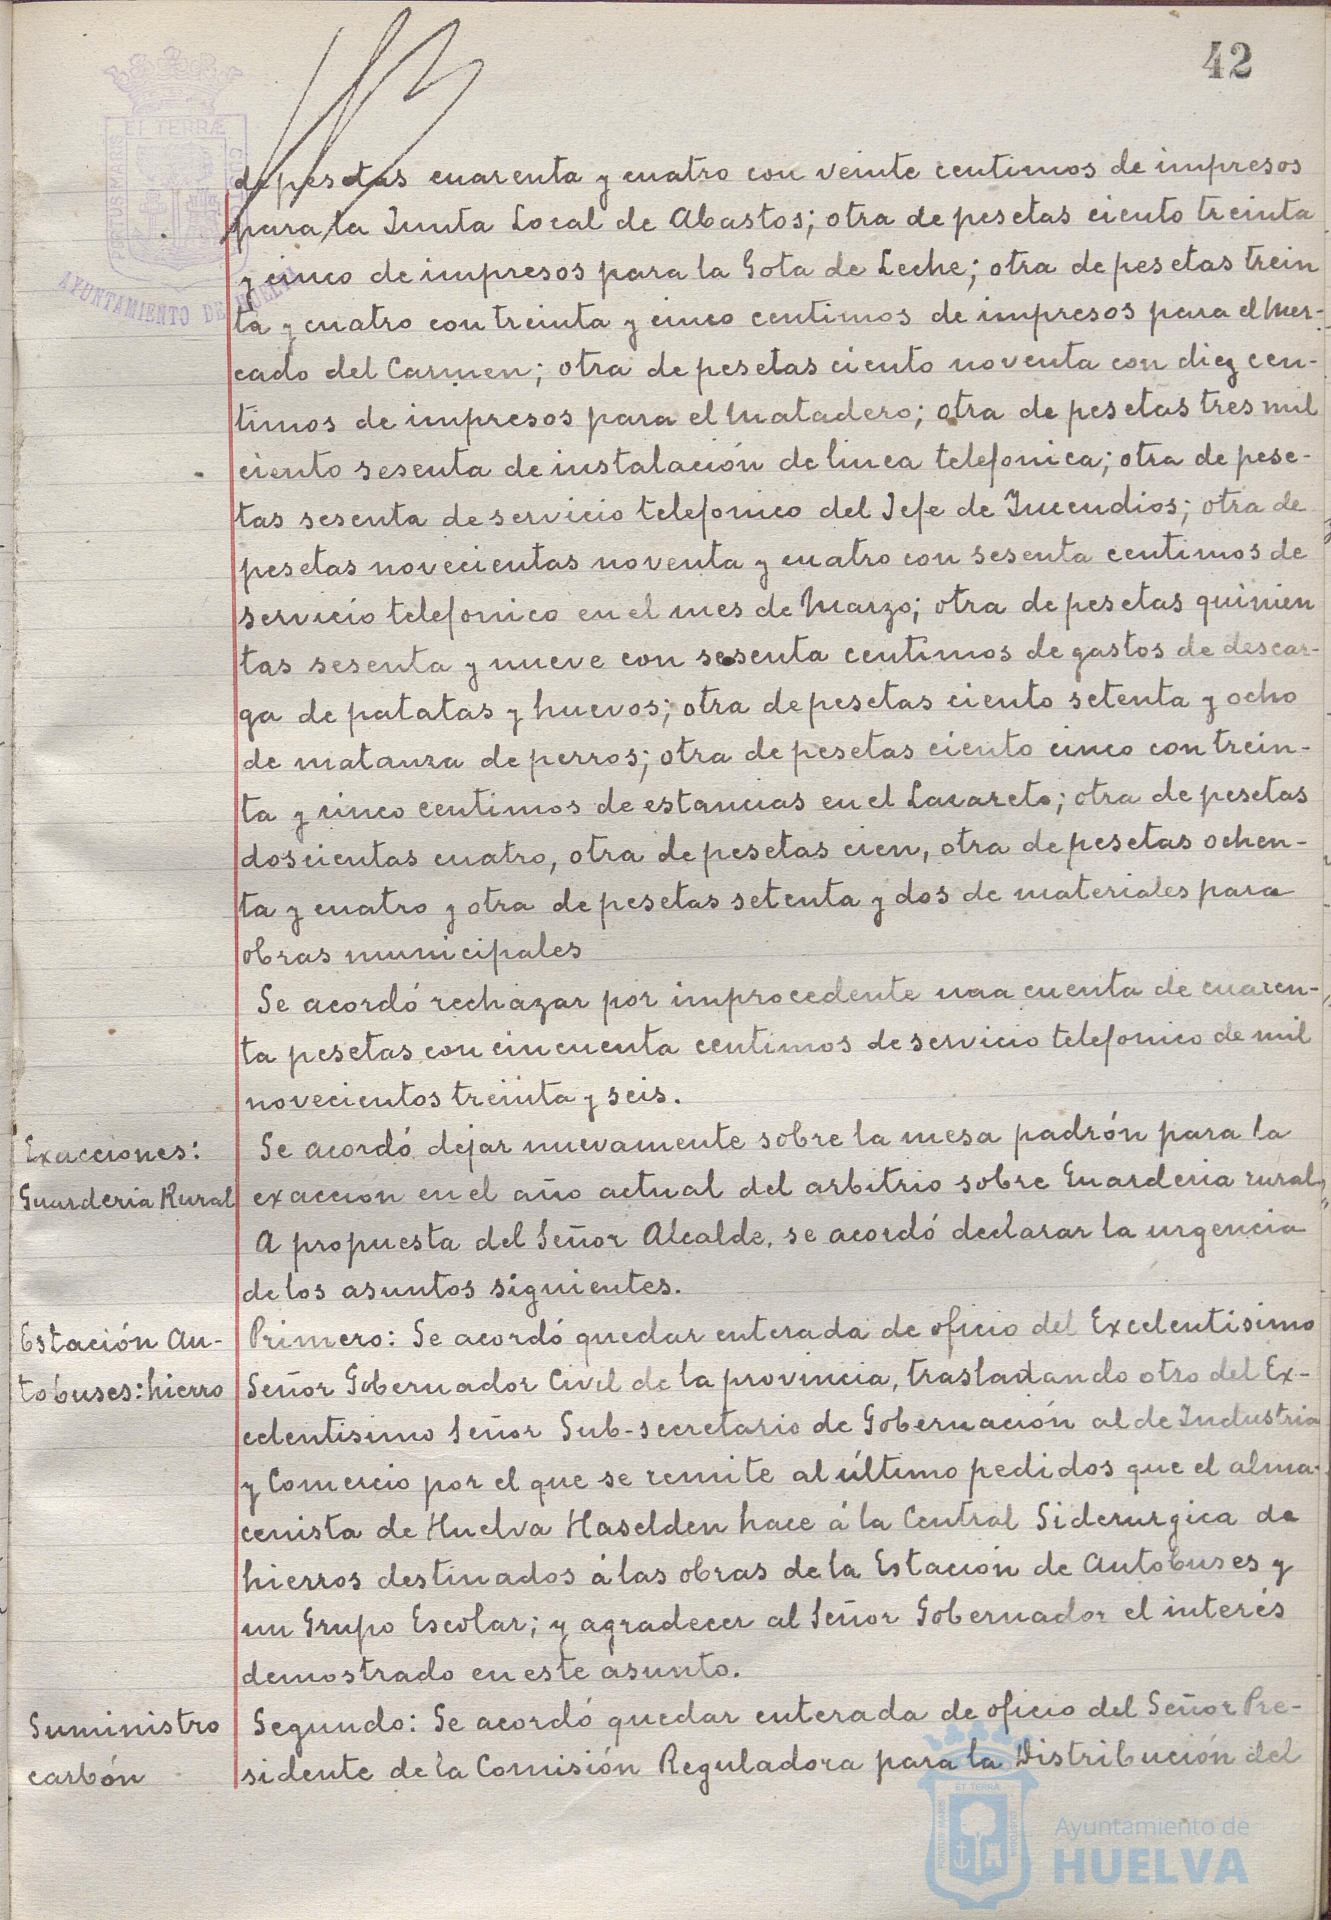 42
ET TERRÆ
PORTUS MARIS
AYUNTAMIENTO DE HUELVA
de pesetas cuarenta y cuatro con veinte centimos de impresos
para la Junta Local de Abastos; otra de pesetas ciento treinta
y cinco de impresos para la Gota de Leche; otra de pesetas trein
ta y cuatro con treinta y cinco centimos de impresos para el Mer-
cado del Carmen; otra de pesetas ciento noventa con diez cen-
timos de impresos para el Matadero; otra de pesetas tres mil
ciento sesenta de instalación de linea telefonica; otra de pese-
tas sesenta de servicio telefonico del Jefe de Incendios; otra de
pesetas novecientas noventa y cuatro con sesenta centimos de
servicio telefonico en el mes de Marzo; otra de pesetas quinien
tas sesenta y nueve con sesenta centimos de gastos de descar-
ga de patatas y huevos; otra de pesetas ciento setenta y ocho
de matanza de perros; otra de pesetas ciento cinco con trein-
ta y cinco centimos de estancias en el Lazareto; otra de pesetas
doscientas cuatro, otra de pesetas cien, otra de pesetas ochen-
ta y cuatro y otra de pesetas setenta y dos de materiales para
obras municipales
Se acordó rechazar por improcedente una cuenta de cuaren-
ta pesetas con cincuenta centimos de servicio telefonico de mil
novecientos treinta y seis.
Exacciones: Se acordó dejar nuevamente sobre la mesa padrón para la
Guarderia Rural exaccion en el año actual del arbitrio sobre Guarderia rural.
A propuesta del Señor Alcalde, se acordó declarar la urgencia
de los asuntos siguientes.
Estación Au- Primero: Se acordó quedar enterada de oficio del Excelentisimo
tobuses: hierro Señor Gobernador Civil de la provincia, trasladando otro del Ex-
celentisimo Señor Sub-secretario de Gobernación al de Industria
y Comercio por el que se remite al último pedidos que el alma-
cenista de Huelva Haselden hace á la Central Siderurgica de
hierros destinados á las obras de la Estación de Autobuses y
un Grupo Escolar; y agradecer al Señor Gobernador el interés
demostrado en este asunto.
Suministro Segundo: Se acordó quedar enterada de oficio del Señor Pre-
carbón sidente de la Comisión Reguladora para la Distribución del
Ayuntamiento de
HUELVA